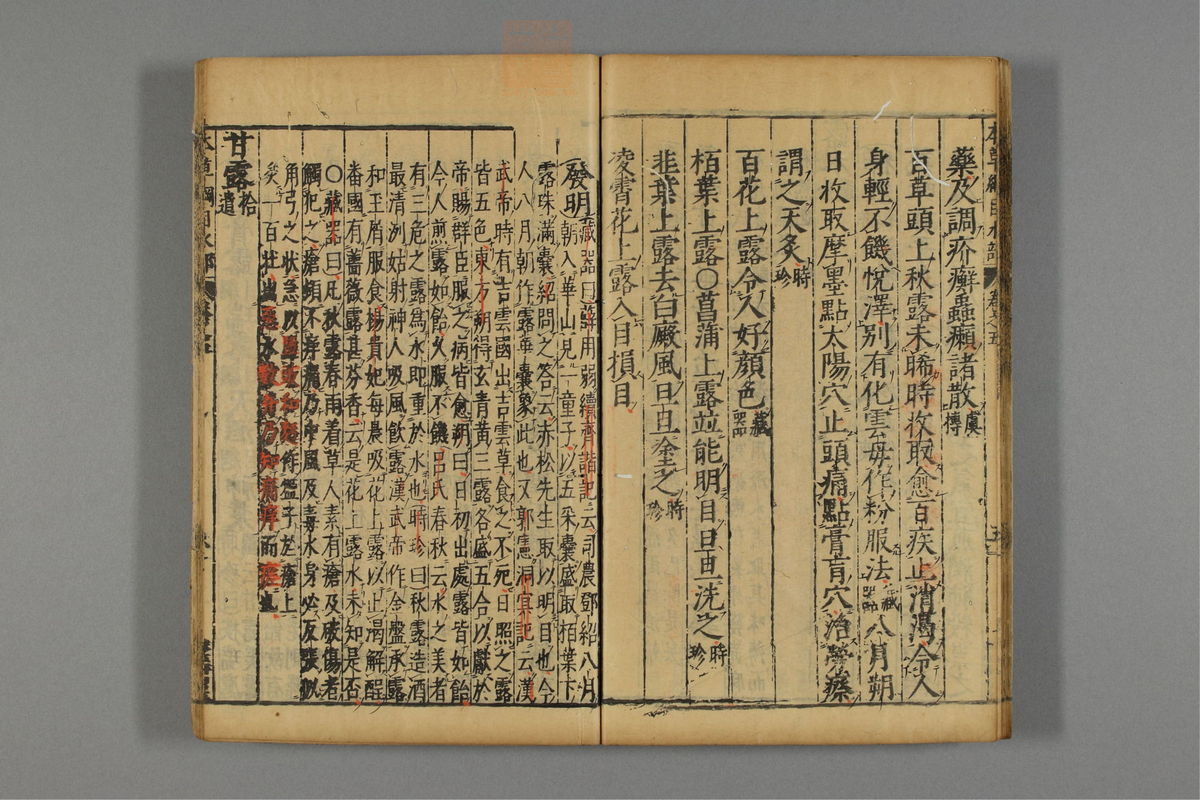 藥及調疥癬蟲癩諸散虞摶
百草頭上秋露未晞時收取愈百疾止消渴令人
身輕不饑悅澤別有化雲母作粉服法藏器八月朔
日收取摩墨點太陽穴止頭痛點膏肓穴治勞瘵
謂之天灸時珍
百花上露令人好顏色藏器
栢葉上露○菖蒲上露並能明目旦旦洗之時珍
韭葉上露去白癜風旦旦塗之時珍
凌霄花上露入目損目
發明藏器曰薛用弱續齊諧記云司農鄧紹八月
朝入華山見一童子以五采囊盛取栢葉下
露珠滿囊紹問之答云赤松先生取以明目也今
人八月朝作露華囊象此也又郭憲洞冥記云漢
武帝時有吉雲國出吉雲草食之不死日照之露
皆五色東方朔得玄青黃三露各盛五合以獻於
帝賜群臣服之病皆愈朔曰日初出處露皆如飴
今人煎露如飴久服不饑呂氏春秋云水之美者
有三危之露爲水即重於水也時珍曰秋露造酒
最清洌姑射神人吸風飲露漢武帝作金盤承露
和玉屑服食楊貴妃每晨吸花上露以止渴解酲
番國有薔薇露甚芬香云是花上露水未知是否
○藏器曰凡秋露春雨着草人素有瘡及破傷者
觸犯之瘡頓不痒痛乃中風及毒水身必反張似
角弓之狀急以鹽豉和麪作盌子於瘡上
灸一百壯出惡水數升乃知痛痒而瘥也
甘露拾遺